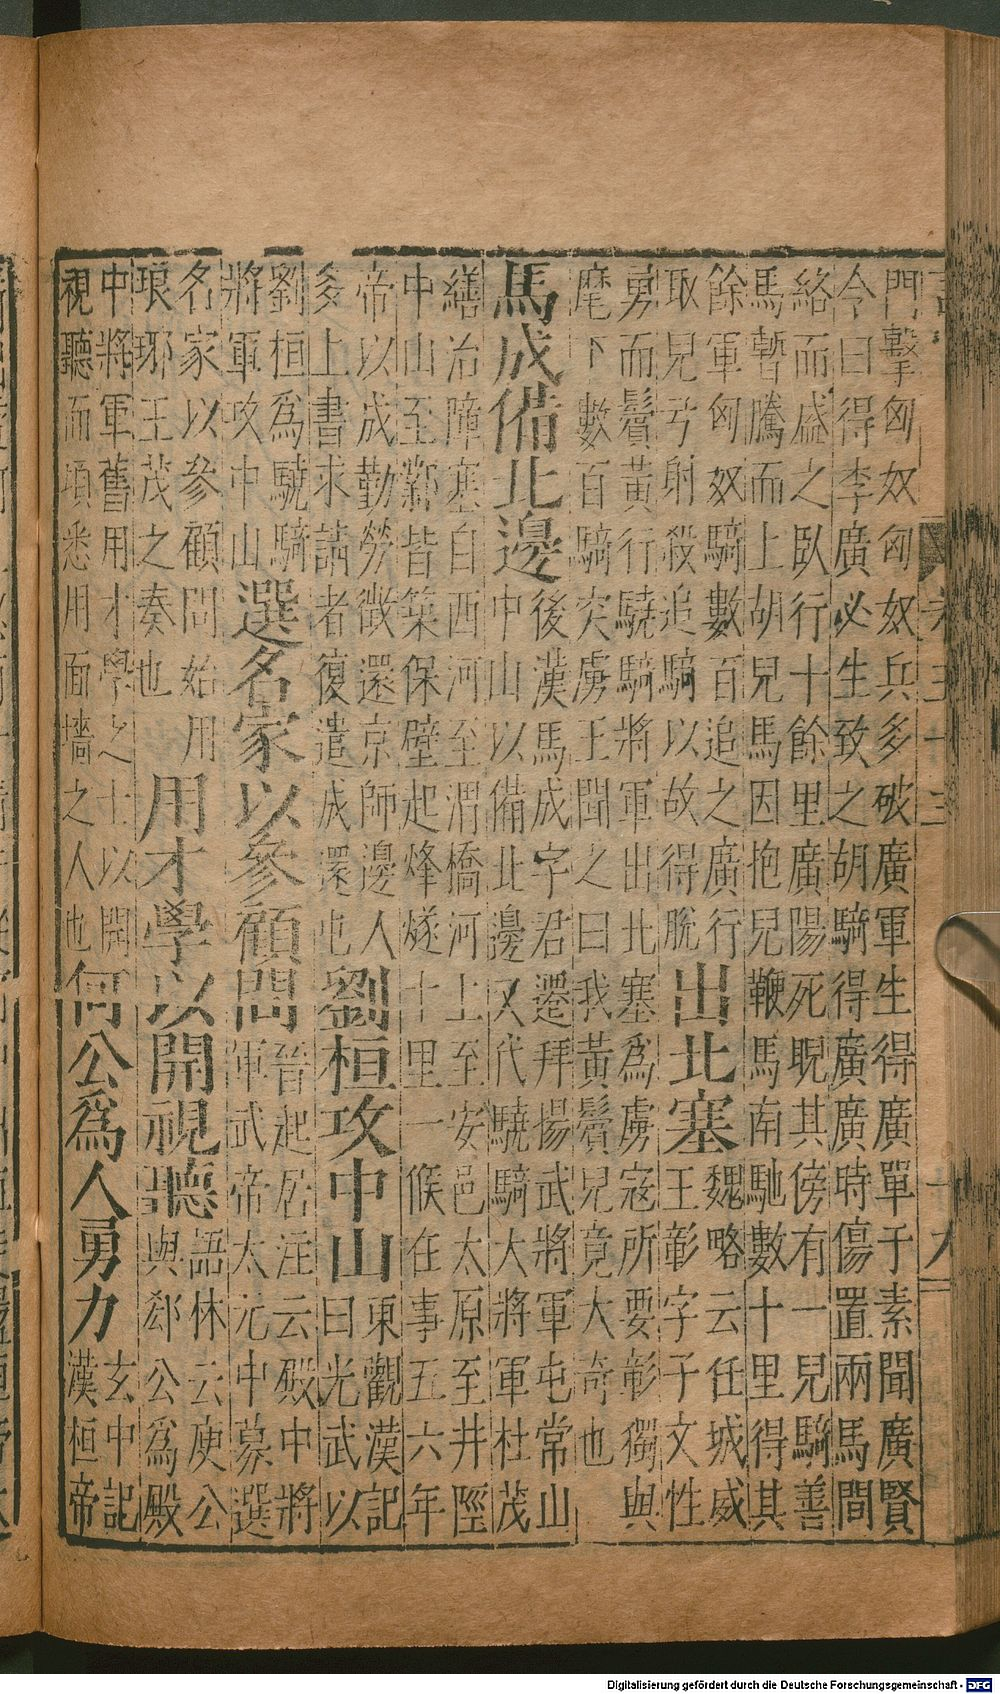 門擊匈奴匈奴兵多破廣軍生得廣單于素聞廣賢
令曰得李廣必生致之胡騎得廣廣時傷置兩馬間
絡而盛之臥行十餘里廣陽死睨其傍有一兒騎善
馬暫騰而上胡兒馬因抱兒鞭馬南馳數十里得其
餘軍匈奴騎數百追之廣行
取兒弓射殺追騎以故得脫
出北塞
魏略云任城威
王彰字子文性
勇而鬢黃行驍騎將軍出北塞爲虜寇所要彰獨與
麾下數百騎突虜王聞之曰我黃鬢兒竟大奇也
馬成備北邊
後漢馬成字君遷拜揚武將軍屯常山
中山以備北邊又代驍騎大將軍杜茂
繕治障塞自西河至渭橋河上至安邑太原至井陘
中山至鄴皆築保壁起烽燧十里一候在事五六年
帝以成勤勞徵還京師邊人
多上書求請者復遣成還屯
劉桓攻中山
東觀漢記
曰光武以
劉桓爲驍騎
將軍攻中山
選名家以參顧問
晉起居注云殿中將
軍武帝太元中募選
名家以參顧問始用
琅琊王茂之奏也
用才學以開視聽
語林云庾公
與郄公爲殿
中將軍舊用才學之士以開
視聽而頃悉用面墻之人也
何公爲人勇力
玄中記
漢桓帝
卷三十三
十九
Digitalisierung gefördert durch die Deutsche Forschungsgemeinschaft - DFG